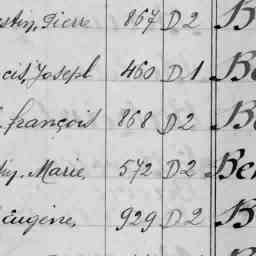 estin, Pierre 867 D 2 B
cis, Joseph 460 D 1 Be
françois 868 D 2 Be
hy, Marie 572 D 2 Ber
Eugène, 929 D 2 B